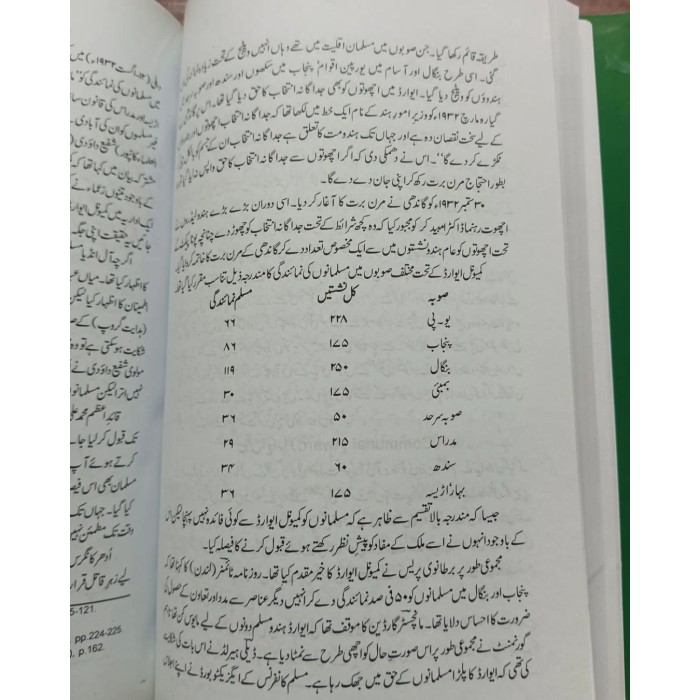 طریقہ قائم رکھا گیا۔ جن صوبوں میں مسلمان اقلیت میں تھے وہاں انہیں ویٹیج کے تحت زیادہ
گئی۔ اسی طرح بنگال اور آسام میں یورپین اقوام، پنجاب میں سکھوں اور سندھ اور صوبہ
ہندوؤں کو ویٹیج دیا گیا۔ ایوارڈ میں اچھوتوں کو بھی جداگانہ انتخاب کا حق دیا گیا تھا۔ اس پر
گیارہ مارچ ۱۹۳۲ء کو وزیر امور ہند کے نام ایک خط میں لکھا تھا کہ جداگانہ انتخاب اچھوتوں
کے لیے سخت نقصان دہ ہے اور جہاں تک ہندومت کا تعلق ہے جداگانہ انتخاب ان کے جسم کے
ٹکڑے کر دے گا''۔ اس نے دھمکی دی کہ اگر اچھوتوں سے جداگانہ انتخاب کا حق واپس نہ لیا
بطور احتجاج مرن برت رکھ کر اپنی جان دے دے گا۔
۳۰ ستمبر ۱۹۳۲ء کو گاندھی نے مرن برت کا آغاز کر دیا۔ اسی دوران بڑے بڑے ہندو لیڈروں
اچھوت رہنما ڈاکٹر امبیدکر کو مجبور کیا کہ وہ کچھ شرائط کے تحت جداگانہ انتخاب کو چھوڑ دے چنانچہ پونا پیکٹ کے
تحت اچھوتوں کو عام ہندو نشستوں میں سے ایک مخصوص تعداد دے کر گاندھی کے مرن برت کا خاتمہ کر دیا گیا۔
کمیونل ایوارڈ کے تحت مختلف صوبوں میں مسلمانوں کی نمائندگی کا مندرجہ ذیل تناسب مقرر کیا گیا تھا۔
صوبہ کل نشستیں مسلم نمائندگی
یو۔پی ۲۲۸ ۶۶
پنجاب ۱۷۵ ۸۶
بنگال ۲۵۰ ۱۱۹
بمبئی ۱۷۵ ۳۰
صوبہ سرحد ۵۰ ۳۶
مدراس ۲۱۵ ۲۹
سندھ ۶۰ ۳۴
بہار/اڑیسہ ۱۷۵ ۳۶
جیسا کہ مندرجہ بالا تقسیم سے ظاہر ہے کہ مسلمانوں کو کمیونل ایوارڈ سے کوئی فائدہ نہیں پہنچا لیکن اس
کے باوجود انہوں نے اسے ملک کے مفاد کو پیش نظر رکھتے ہوئے قبول کرنے کا فیصلہ کیا۔
مجموعی طور پر برطانوی پریس نے کمیونل ایوارڈ کا خیر مقدم کیا تھا۔ روزنامہ ٹائمز (لندن) کا کہنا تھا کہ
پنجاب اور بنگال میں مسلمانوں کو ۵۰ فی صد نمائندگی دے کر انہیں دیگر عناصر سے مدد اور تعاون کے حصول کی
ضرورت کا احساس دلایا۔ مانچسٹر گارڈین کا موقف تھا کہ ایوارڈ ہندو مسلم دونوں کے لیے مایوس کن تھا تاہم
گورنمنٹ نے مجموعی طور پر اس صورت حال کو اچھی طرح سے نمٹا دیا ہے۔ ڈیلی ہیرلڈ نے اس بات کی
کی تھی کہ ایوارڈ کا پلڑا مسلمانوں کے حق میں جھک رہا ہے۔ مسلم کانفرنس کے ایگزیکٹو بورڈ نے اپنے
دہلی (۲۳۔اگست ۱۹۳۲ء) میں
میں مسلمانوں کی نمائندگی کو
اڑیسہ اور مدراس کی قانون ساز
غیر مسلموں کو ان کی آبادی
(علماء کانپور) شفیع داؤدی
مشترکہ بیان میں کہا تھا کہ
باوجود تینوں زعماء نے
ایک اور اداریہ میں کمیونل ایوارڈ
جائیں یہ حقیقت اپنی جگہ
اگرچہ آل انڈیا مسلم
کا اظہار کیا تھا۔ میاں
اطمینان کا اظہار کیا
(ہدایت گروپ) کے
شکایت ہو سکتی ہے تو وہ
مولوی شفیع داؤدی نے
نہیں اترا لیکن مسلمانوں
قائد اعظم محمد علی
تک قبول کر لیا جائے۔
کرتے ہوئے آپ
مسلمان بھی اس فیصلے
کیا گیا۔ جہاں تک
وقت تک مطمئن نہیں
ادھر کانگرس
لیے زہر قاتل قرار
5-121.
pp.224-225.
), p.162.